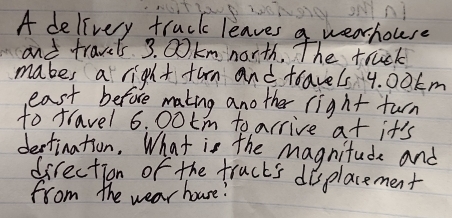 A delivery truck leaves a wearhouse
and travels 3.00km north. The truck
makes a right turn and travels 4.00km
east before making another right turn
to travel 6.00km to arrive at it's
destination. What is the magnitude and
direction of the truck's displacement
from the wearhouse?